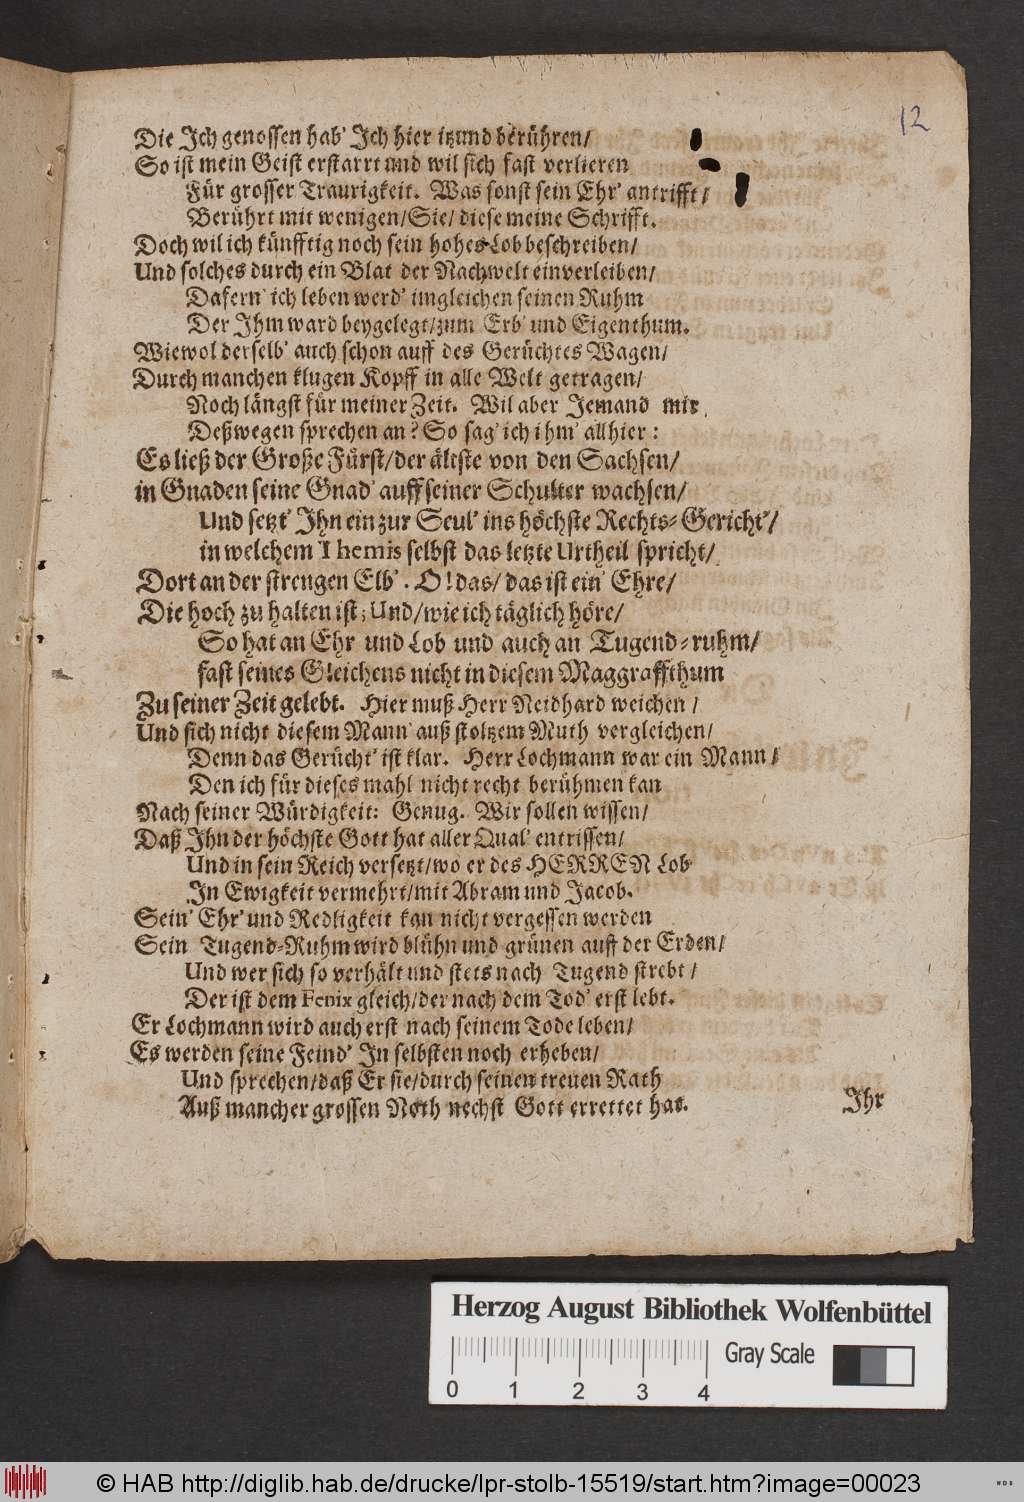 12
Die Ich genossen hab' Ich hier itzund berühren/
So ist mein Geist erstarrt und wil sich fast verlieren
Für grosser Traurigkeit. Was sonst sein Ehr' antrifft/
Berührt mit wenigen/Sie/ diese meine Schrifft.
Doch wil ich künfftig noch sein hohes Lob beschreiben/
Und solches durch ein Blat der Nachwelt einverleiben/
Dafern' ich leben werd' imgleichen seinen Ruhm
Der Ihm ward beygelegt/zum Erb' und Eigenthum.
Wiewol derselb' auch schon auff des Gerüchtes Wagen/
Durch manchen klugen Kopff in alle Welt getragen/
Noch längst für meiner Zeit. Wil aber Jemand mir
Deßwegen sprechen an? So sag' ich ihm' allhier:
Es ließ der Große Fürst/der älteste von den Sachsen/
in Gnaden seine Gnad' auff seiner Schulter wachsen/
Und setzt' Ihn ein zur Seul' ins höchste Rechts-Gericht'/
in welchem Themis selbst das letzte Urtheil spricht/
Dort an der strengen Elb'. O! das/ das ist ein' Ehre/
Die hoch zu halten ist; Und/wie ich täglich höre/
So hat an Ehr und Lob und auch an Tugend-ruhm/
fast seines Gleichens nicht in diesem Maggraffthum
Zu seiner Zeit gelebt. Hier muß Herr Neidhard weichen/
Und sich nicht diesem Mann' auß stoltzem Muth vergleichen/
Denn das Gerücht' ist klar. Herr Lochmann war ein Mann/
Den ich für dieses mahl nicht recht berühmen kan
Nach seiner Würdigkeit: Genug. Wir sollen wissen/
Daß Ihn der höchste Gott hat aller Qual' entrissen/
Und in sein Reich versetzt/wo er des HERREN Lob
In Ewigkeit vermehrt/mit Abram und Jacob.
Sein' Ehr' und Redligkeit kan nicht vergessen werden
Sein Tugend-Ruhm wird blühn und grünen auff der Erden/
Und wer sich so verhält und stets nach Tugend strebt/
Der ist dem Fenix gleich/der nach dem Tod' erst lebt.
Er Lochmann wird auch erst nach seinem Tode leben/
Es werden seine Feind' In selbsten noch erheben/
Und sprechen/daß Er sie/durch seinen treuen Rath
Auß mancher grossen Noth nechst Gott errettet hat.
Ihr
Herzog August Bibliothek Wolfenbüttel
Gray Scale
0 1 2 3 4
© HAB http://diglib.hab.de/drucke/lpr-stolb-15519/start.htm?image=00023